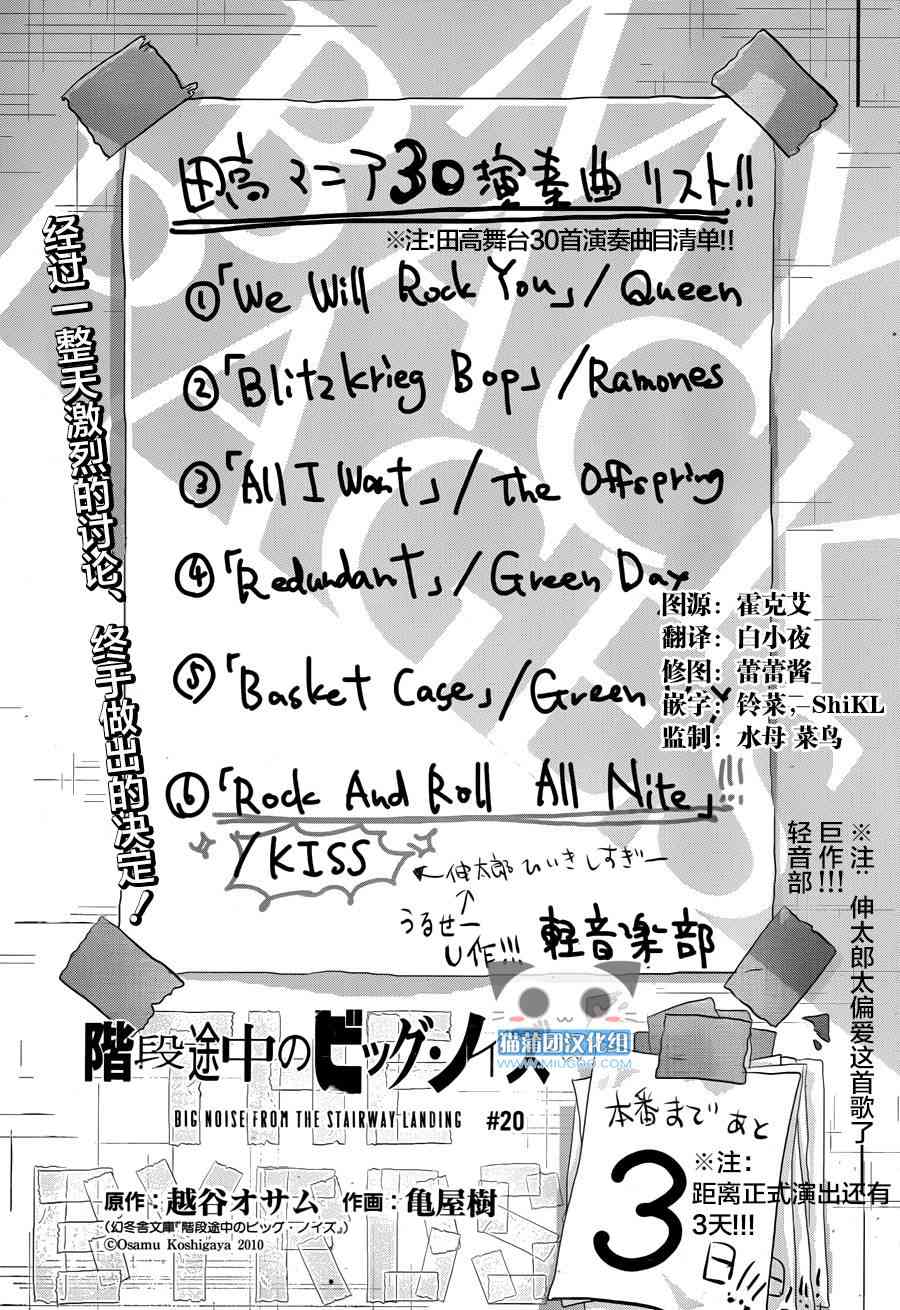 田高マニア30演奏曲リスト!!
※注:田高舞台30首演奏曲目清单!!
①「We Will Rock You」/Queen
②「Blitzkrieg Bop」/Ramones
③「All I Want」/The Offspring
④「Redundant」/Green Day
⑤「Basket Case」/Green
⑥「Rock And Roll All Nite」!!!
/KISS
←伸太郎ひいきしすぎー
↑
うるせー
軽音楽部
经过一整天激烈的讨论、终于做出的决定!
图源：霍克艾
翻译：白小夜
修图：蕾蕾酱
嵌字：铃菜，ShiKL
监制：水母 菜鸟
※注：伸太郎太偏爱这首歌了—
巨作!!!
轻音部
猫蒲团汉化组
階段途中のビッグ・ノイズ
BIG NOISE FROM THE STAIRWAY LANDING #20
原作：越谷オサム 作画：亀屋樹
(幻冬舎文庫『階段途中のビッグ・ノイズ』)
©Osamu Koshigaya 2010
本番まであと
3
日!!!
※注：
距离正式演出还有
3天!!!